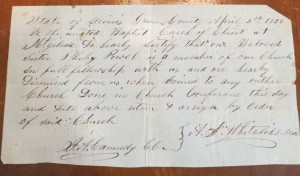 State of Illinois Green County April 5th 1851
We the united Baptist Church of Christ at
do hearby Certify that our Beloved
Sister Powell is a member of our Church
in full fellowship with us and is hearby
Dismised from us when Joined to any other
Church Done in Church Conference this day
and date above ritten & assign by order
of said Church
A. W. Whitehides Mod
Cannedy Clk